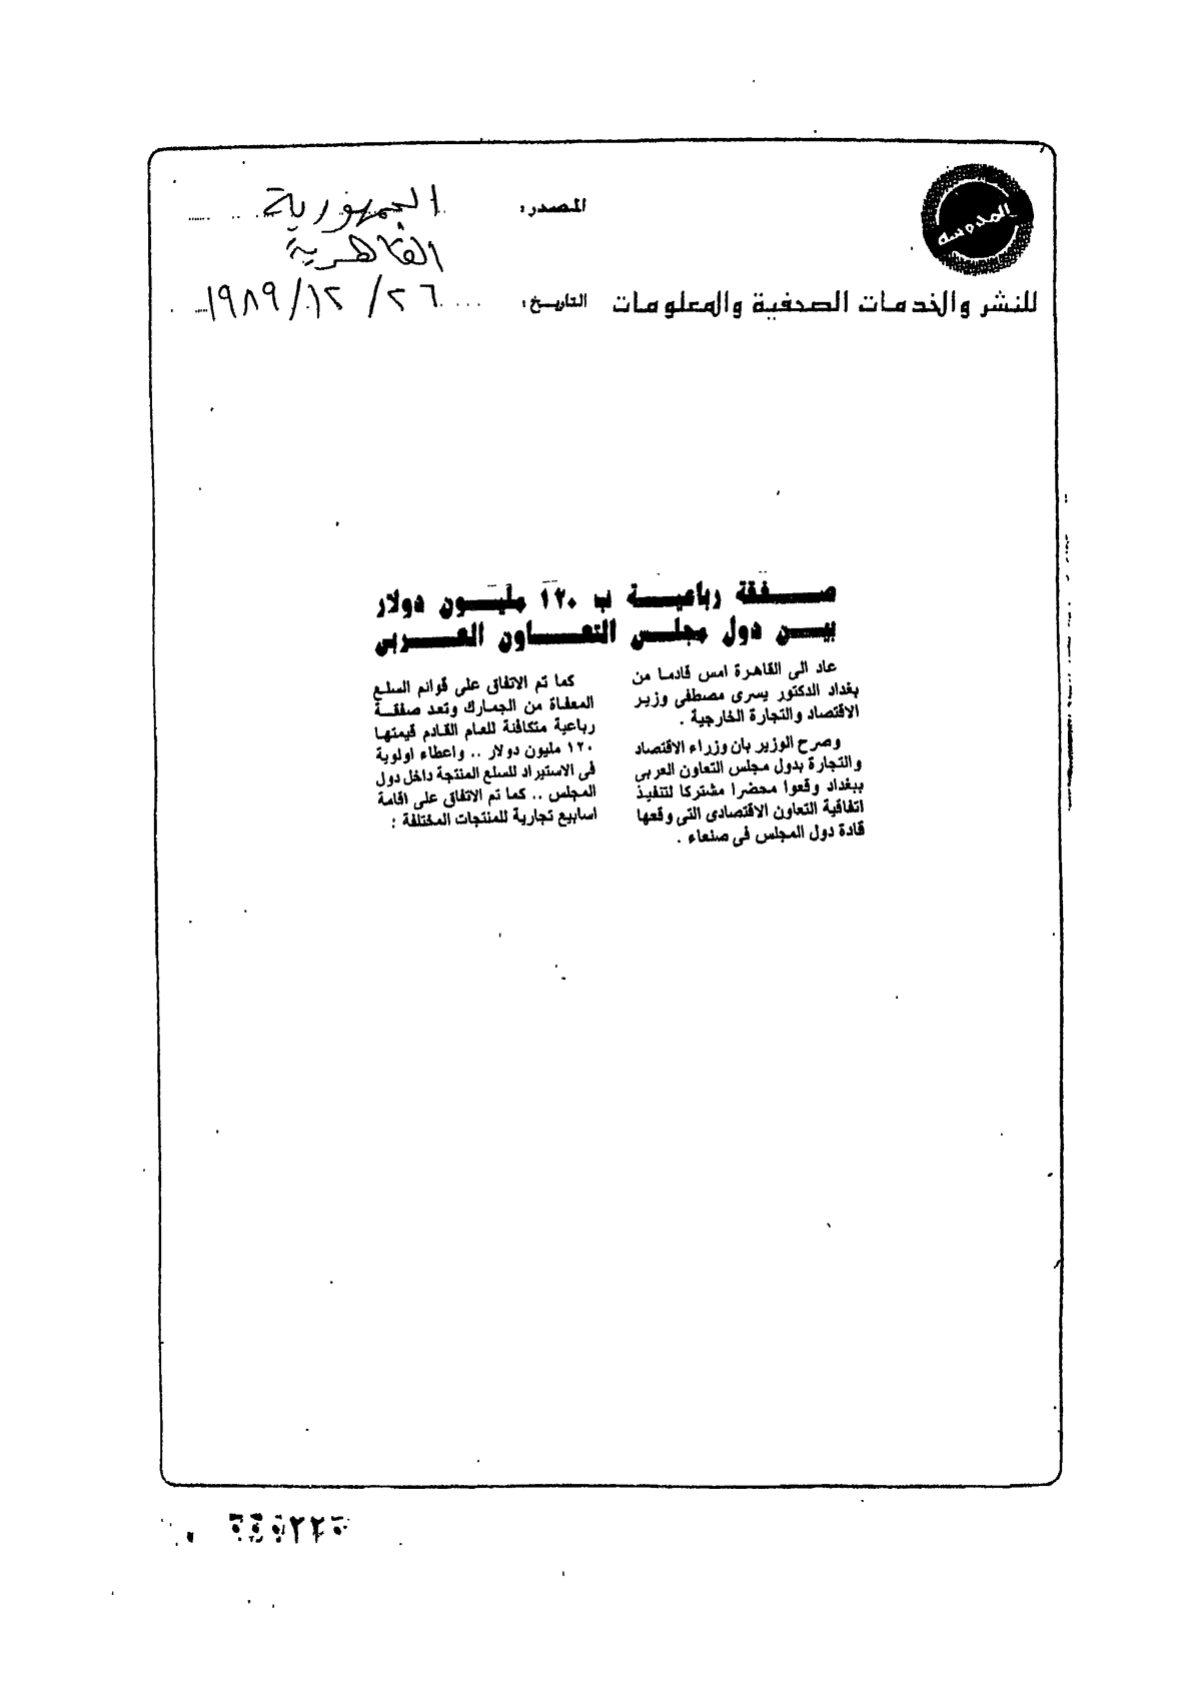 المدوسه
للنشر والخدمات الصحفية والمعلومات
المصدر: الجمهورية
القاهرية
التاريخ: ٢٦ / ١٢ / ١٩٨٩
صفقة رباعية ب ١٢٠ مليون دولار
بين دول مجلس التعاون العربى
عاد الى القاهرة امس قادما من
بغداد الدكتور يسرى مصطفى وزير
الاقتصاد والتجارة الخارجية .
وصرح الوزير بان وزراء الاقتصاد
والتجارة بدول مجلس التعاون العربى
ببغداد وقعوا محضرا مشتركا لتنفيذ
اتفاقية التعاون الاقتصادى التى وقعها
قادة دول المجلس فى صنعاء .
كما تم الاتفاق على قوائم السلع
المعفاة من الجمارك وتعد صفقة
رباعية متكافئة للعام القادم قيمتها
١٢٠ مليون دولار .. واعطاء اولوية
فى الاستيراد للسلع المنتجة داخل دول
المجلس .. كما تم الاتفاق على اقامة
اسابيع تجارية للمنتجات المختلفة :